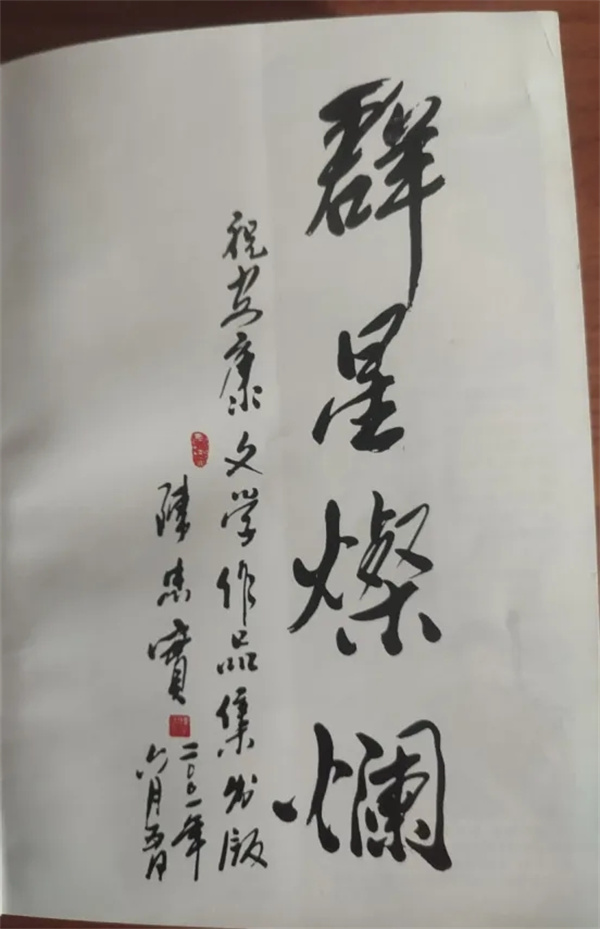 群星燦爛
祝安康文学作品集出版
陳忠實
二〇〇一年
六月五日